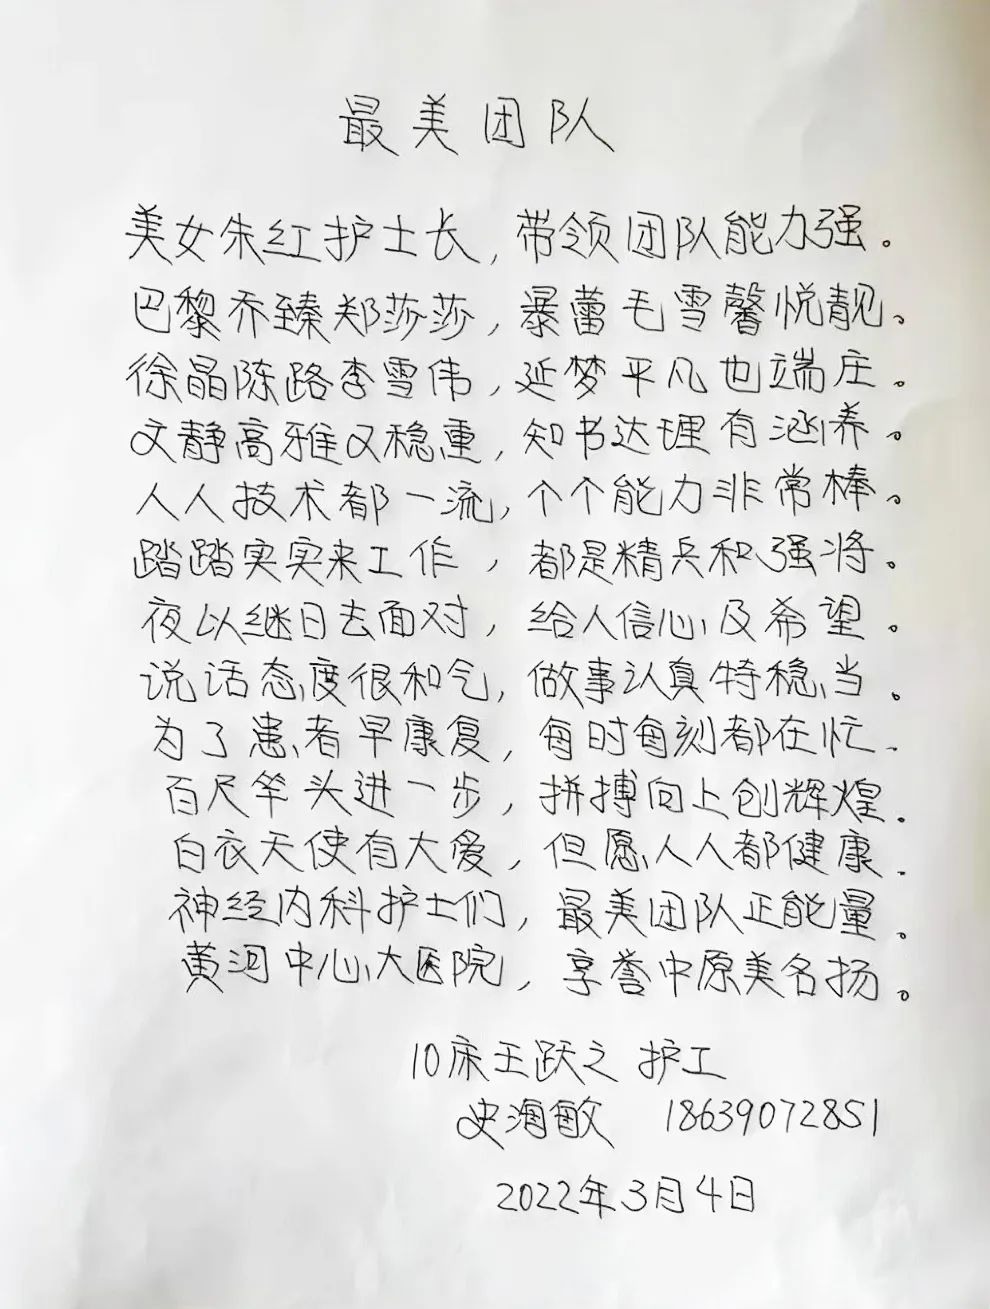 最美团队
美女朱红护士长，带领团队能力强。
巴黎乔臻郑莎莎，暴蕾毛雪馨悦靓。
徐晶陈路李雪伟，延梦平凡也端庄。
文静高雅又稳重，知书达理有涵养。
人人技术都一流，个个能力非常棒。
踏踏实实来工作，都是精兵和强将。
夜以继日去面对，给人信心及希望。
说话态度很和气，做事认真特稳当。
为了患者早康复，每时每刻都在忙.
百尺竿头进一步，拼搏向上创辉煌.
白衣天使有大爱，但愿人人都健康.
神经内科护士们，最美团队正能量。
黄河中心大医院，享誉中原美名扬。
10床王跃之 护工
史海敏 18639072851
2022年3月4日